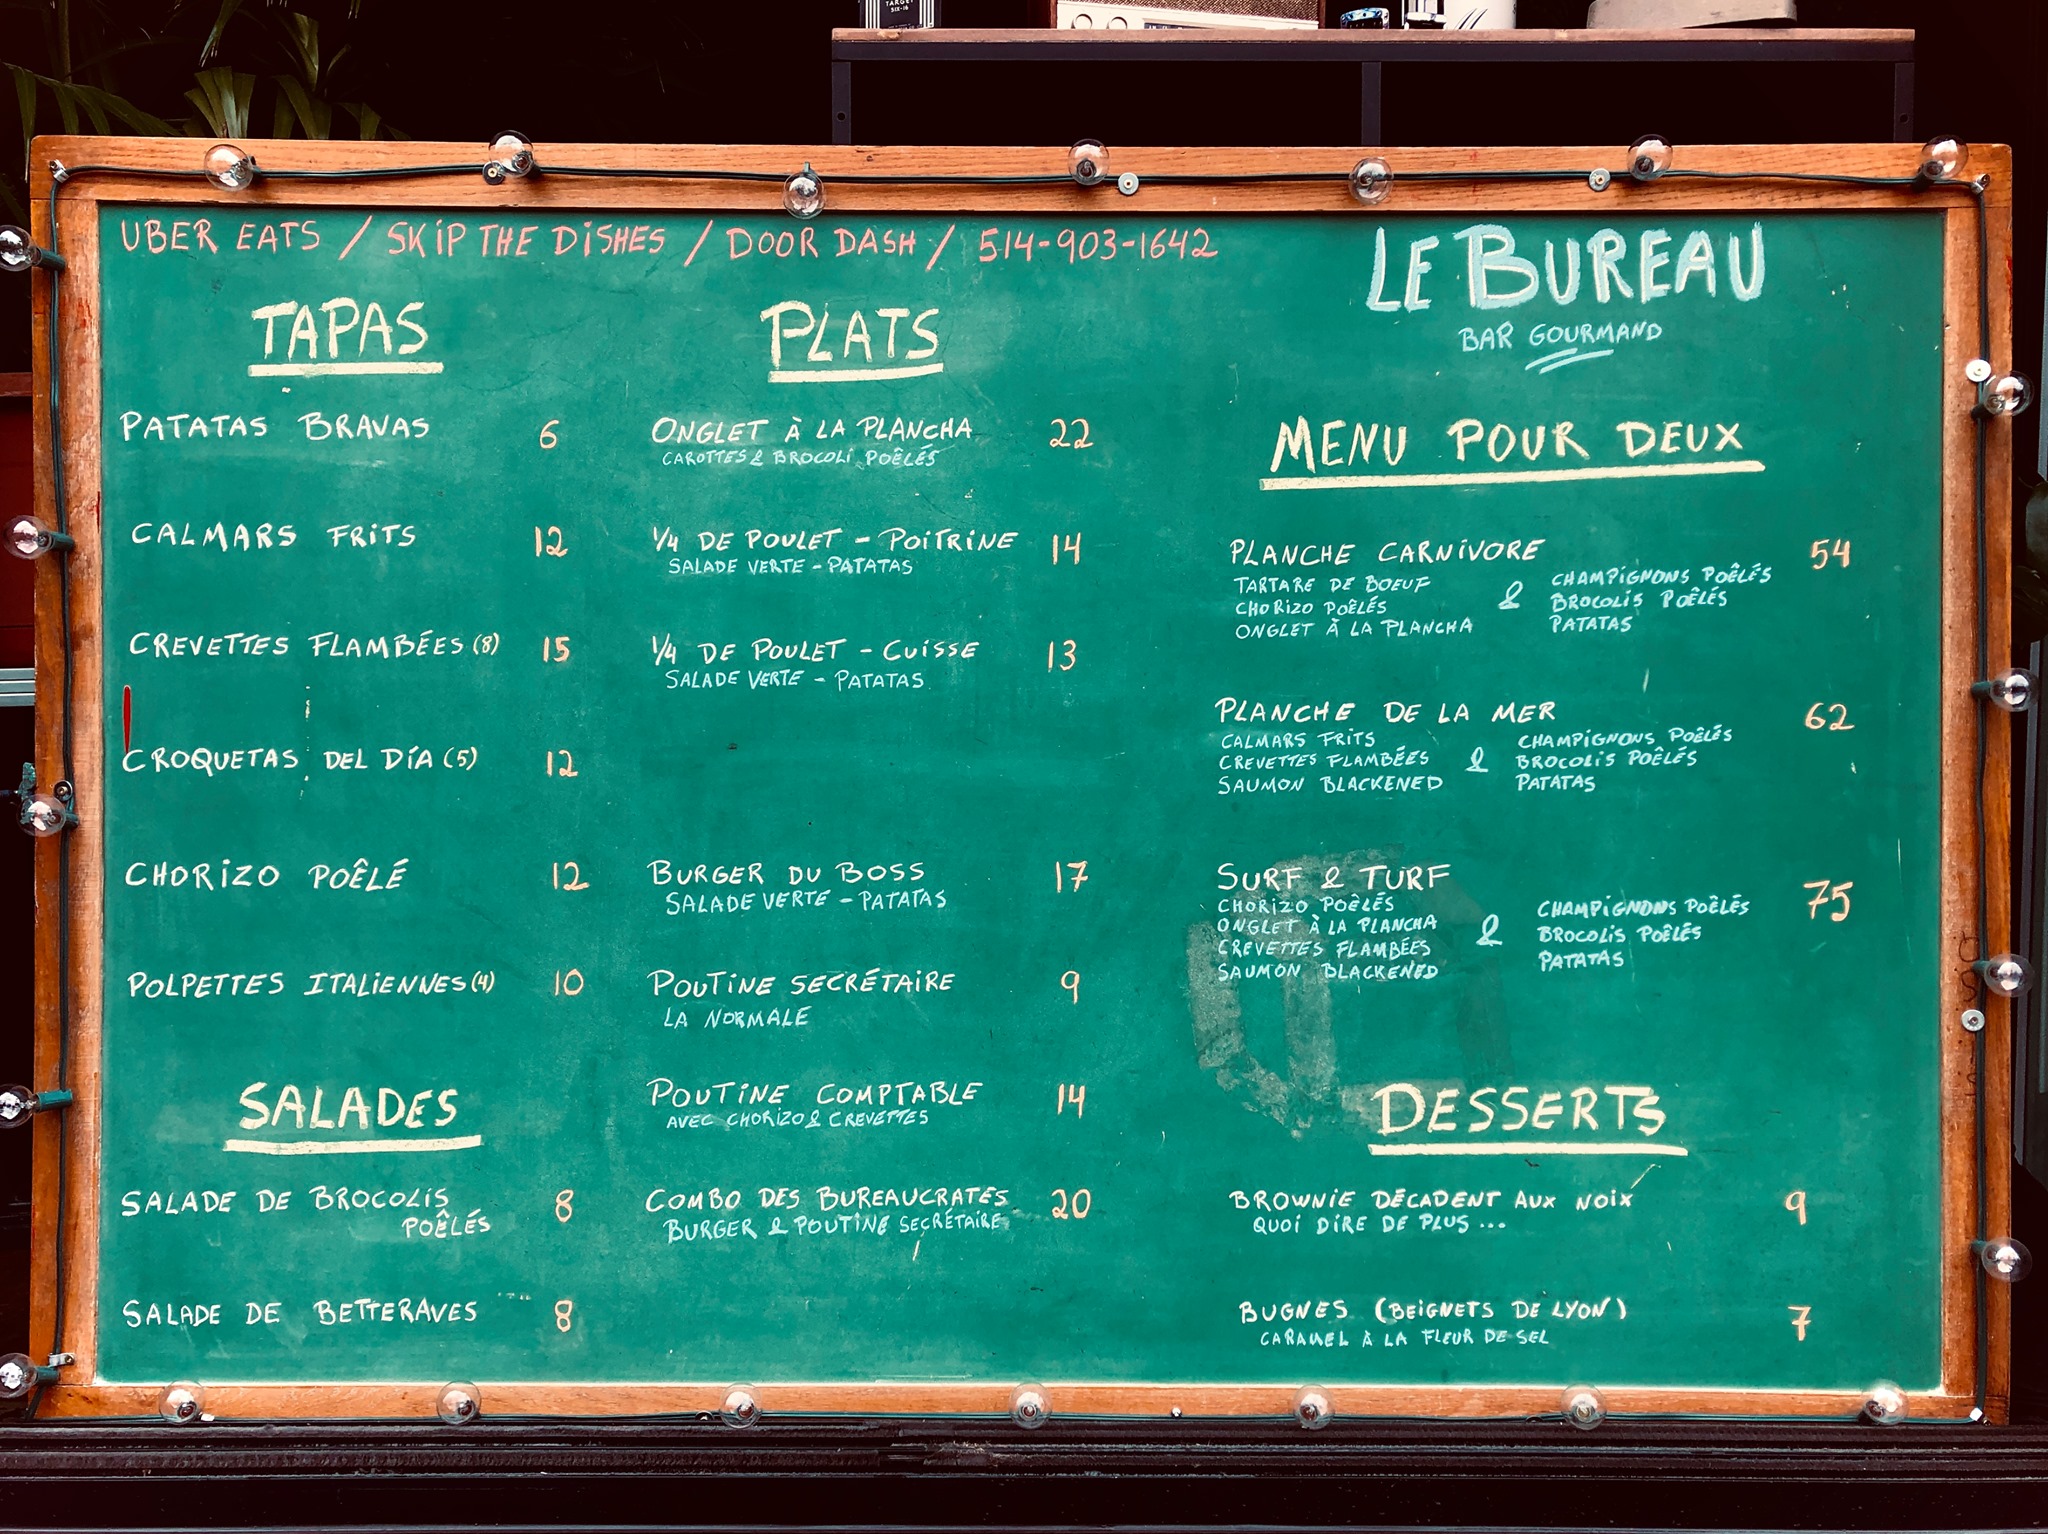 TARGET
SIX-16
UBER EATS / SKIP THE DISHES / DOOR DASH / 514-903-1642
LE BUREAU
BAR GOURMAND
TAPAS
PATATAS BRAVAS 6
CALMARS FRITS 12
CREVETTES FLAMBÉES (8) 15
CROQUETAS DEL DÍA (5) 12
CHORIZO POÊLÉ 12
POLPETTES ITALIENNES (4) 10
SALADES
SALADE DE BROCOLIS 8
POÊLÉS
SALADE DE BETTERAVES 8
PLATS
ONGLET À LA PLANCHA 22
CAROTTES & BROCOLI POÊLÉS
1/4 DE POULET - POITRINE 14
SALADE VERTE - PATATAS
1/4 DE POULET - CUISSE 13
SALADE VERTE - PATATAS
BURGER DU BOSS 17
SALADE VERTE - PATATAS
POUTINE SECRÉTAIRE 9
LA NORMALE
POUTINE COMPTABLE 14
AVEC CHORIZO & CREVETTES
COMBO DES BUREAUCRATES 20
BURGER & POUTINE SECRÉTAIRE
MENU POUR DEUX
PLANCHE CARNIVORE 54
TARTARE DE BOEUF
CHORIZO POÊLÉS
ONGLET À LA PLANCHA
&
CHAMPIGNONS POÊLÉS
BROCOLIS POÊLÉS
PATATAS
PLANCHE DE LA MER 62
CALMARS FRITS
CREVETTES FLAMBÉES
SAUMON BLACKENED
&
CHAMPIGNONS POÊLÉS
BROCOLIS POÊLÉS
PATATAS
SURF & TURF 75
CHORIZO POÊLÉS
ONGLET À LA PLANCHA
CREVETTES FLAMBÉES
SAUMON BLACKENED
&
CHAMPIGNONS POÊLÉS
BROCOLIS POÊLÉS
PATATAS
DESSERTS
BROWNIE DÉCADENT AUX NOIX 9
QUOI DIRE DE PLUS ...
BUGNES (BEIGNETS DE LYON) 7
CARAMEL À LA FLEUR DE SEL